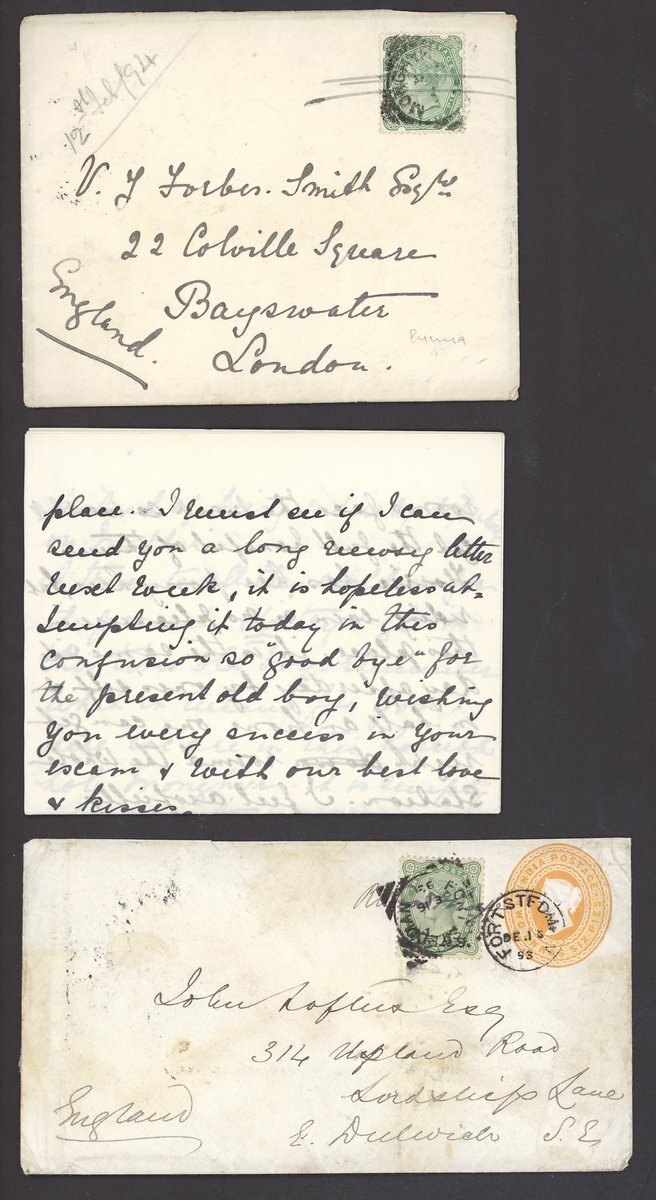 12th Feb/94
V. F Forbes. Smith Esqre
22 Colville Square
Bayswater
London.
England.
Burma
place. I must see if I can
send you a long newsy letter
next week, it is hopeless at=
tempting it today in this
confusion so "good bye" for
the present old boy, wishing
you every success in your
exam & with our best love
& kisses.
FORT STEDMAN
DE. 13
93
John Loftus Esq
314 Upland Road
Lordship Lane
E. Dulwich S.E.
England